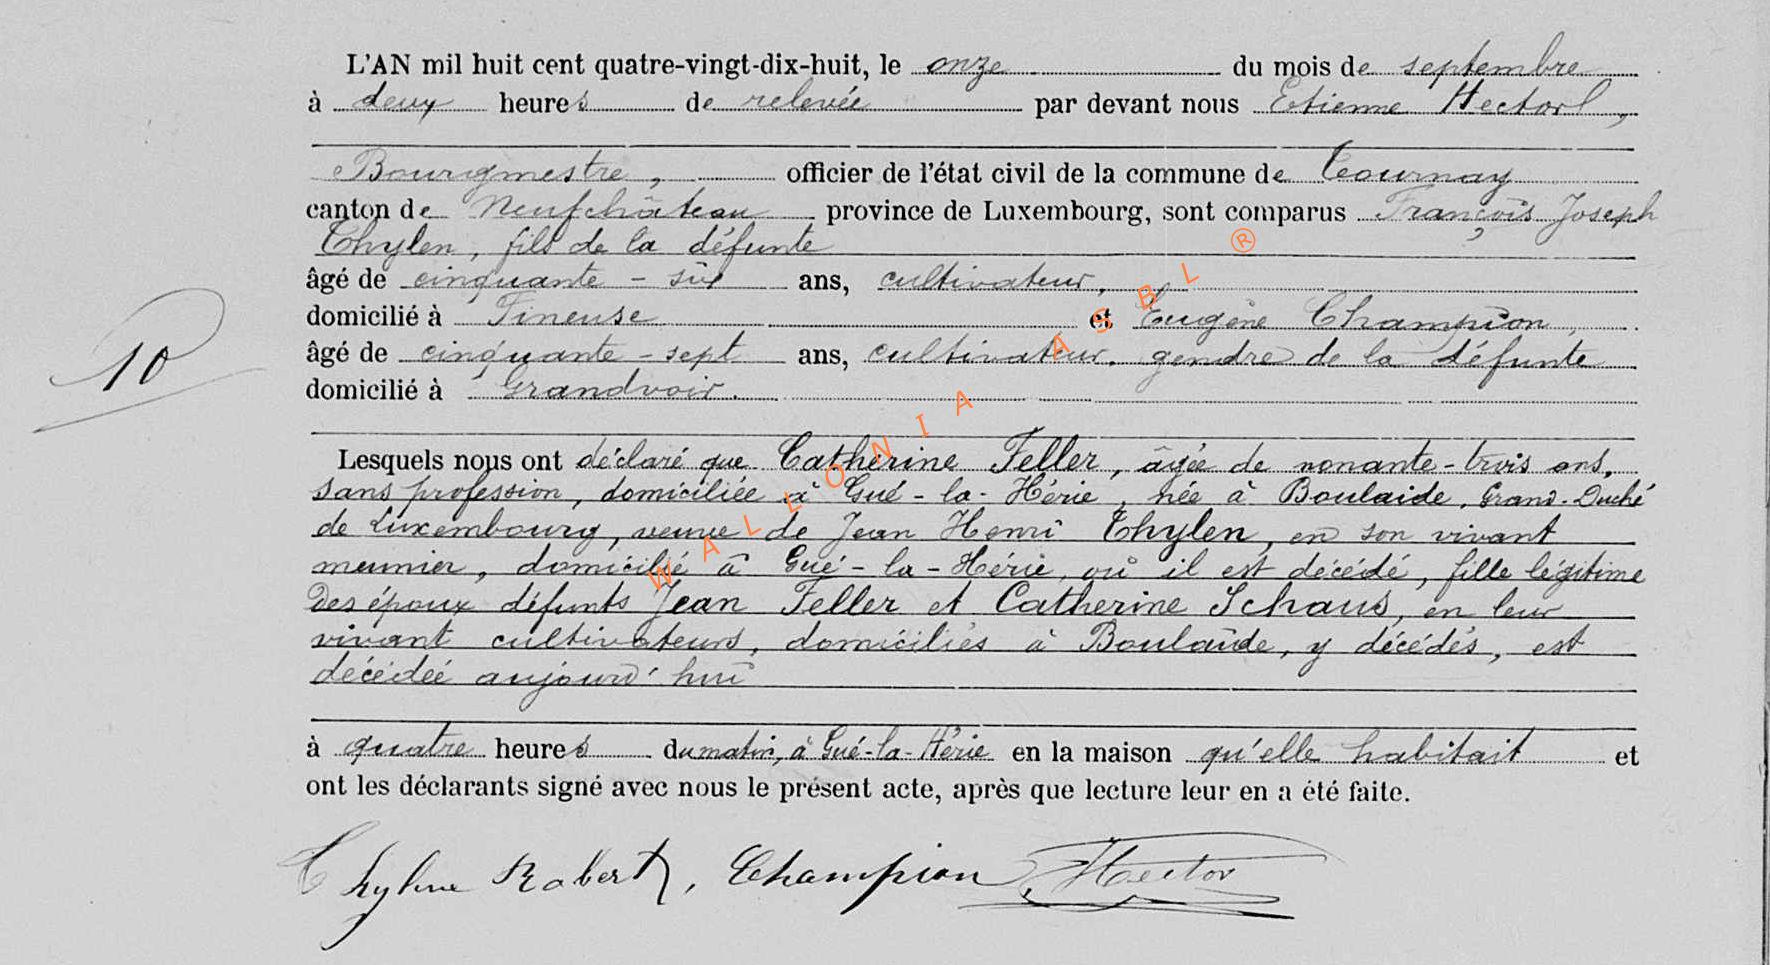 L'AN mil huit cent quatre-vingt-dix-huit, le onze du mois de septembre
à deux heures de relevée par devant nous Etienne Hector,
Bourgmestre, officier de l'état civil de la commune de Tournay
canton de Neufchâteau province de Luxembourg, sont comparus François Joseph
Thylen, fils de la défunte
âgé de cinquante-six ans, cultivateur,
domicilié à Tineuse et Eugène Champion,
âgé de cinquante-sept ans, cultivateur, gendre de la défunte
domicilié à Grandvoir.
10
Lesquels nous ont déclaré que Catherine Feller, âgée de nonante-trois ans,
sans profession, domiciliée à Gué-la-Hérie, née à Boulaide, Grand-Duché
de Luxembourg, veuve de Jean Henri Thylen, en son vivant
meunier, domicilié à Gué-la-Hérie, où il est décédé, fille légitime
des époux défunts Jean Feller et Catherine Schaus, en leur
vivant cultivateurs, domiciliés à Boulaide, y décédés, est
décédée aujourd'hui
à quatre heures du matin, à Gué-la-Hérie en la maison qu'elle habitait et
ont les déclarants signé avec nous le présent acte, après que lecture leur en a été faite.
Robert, Champion Hector
WALLONIA ASBL ®